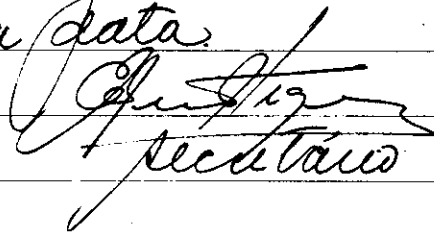 a data.
secretário